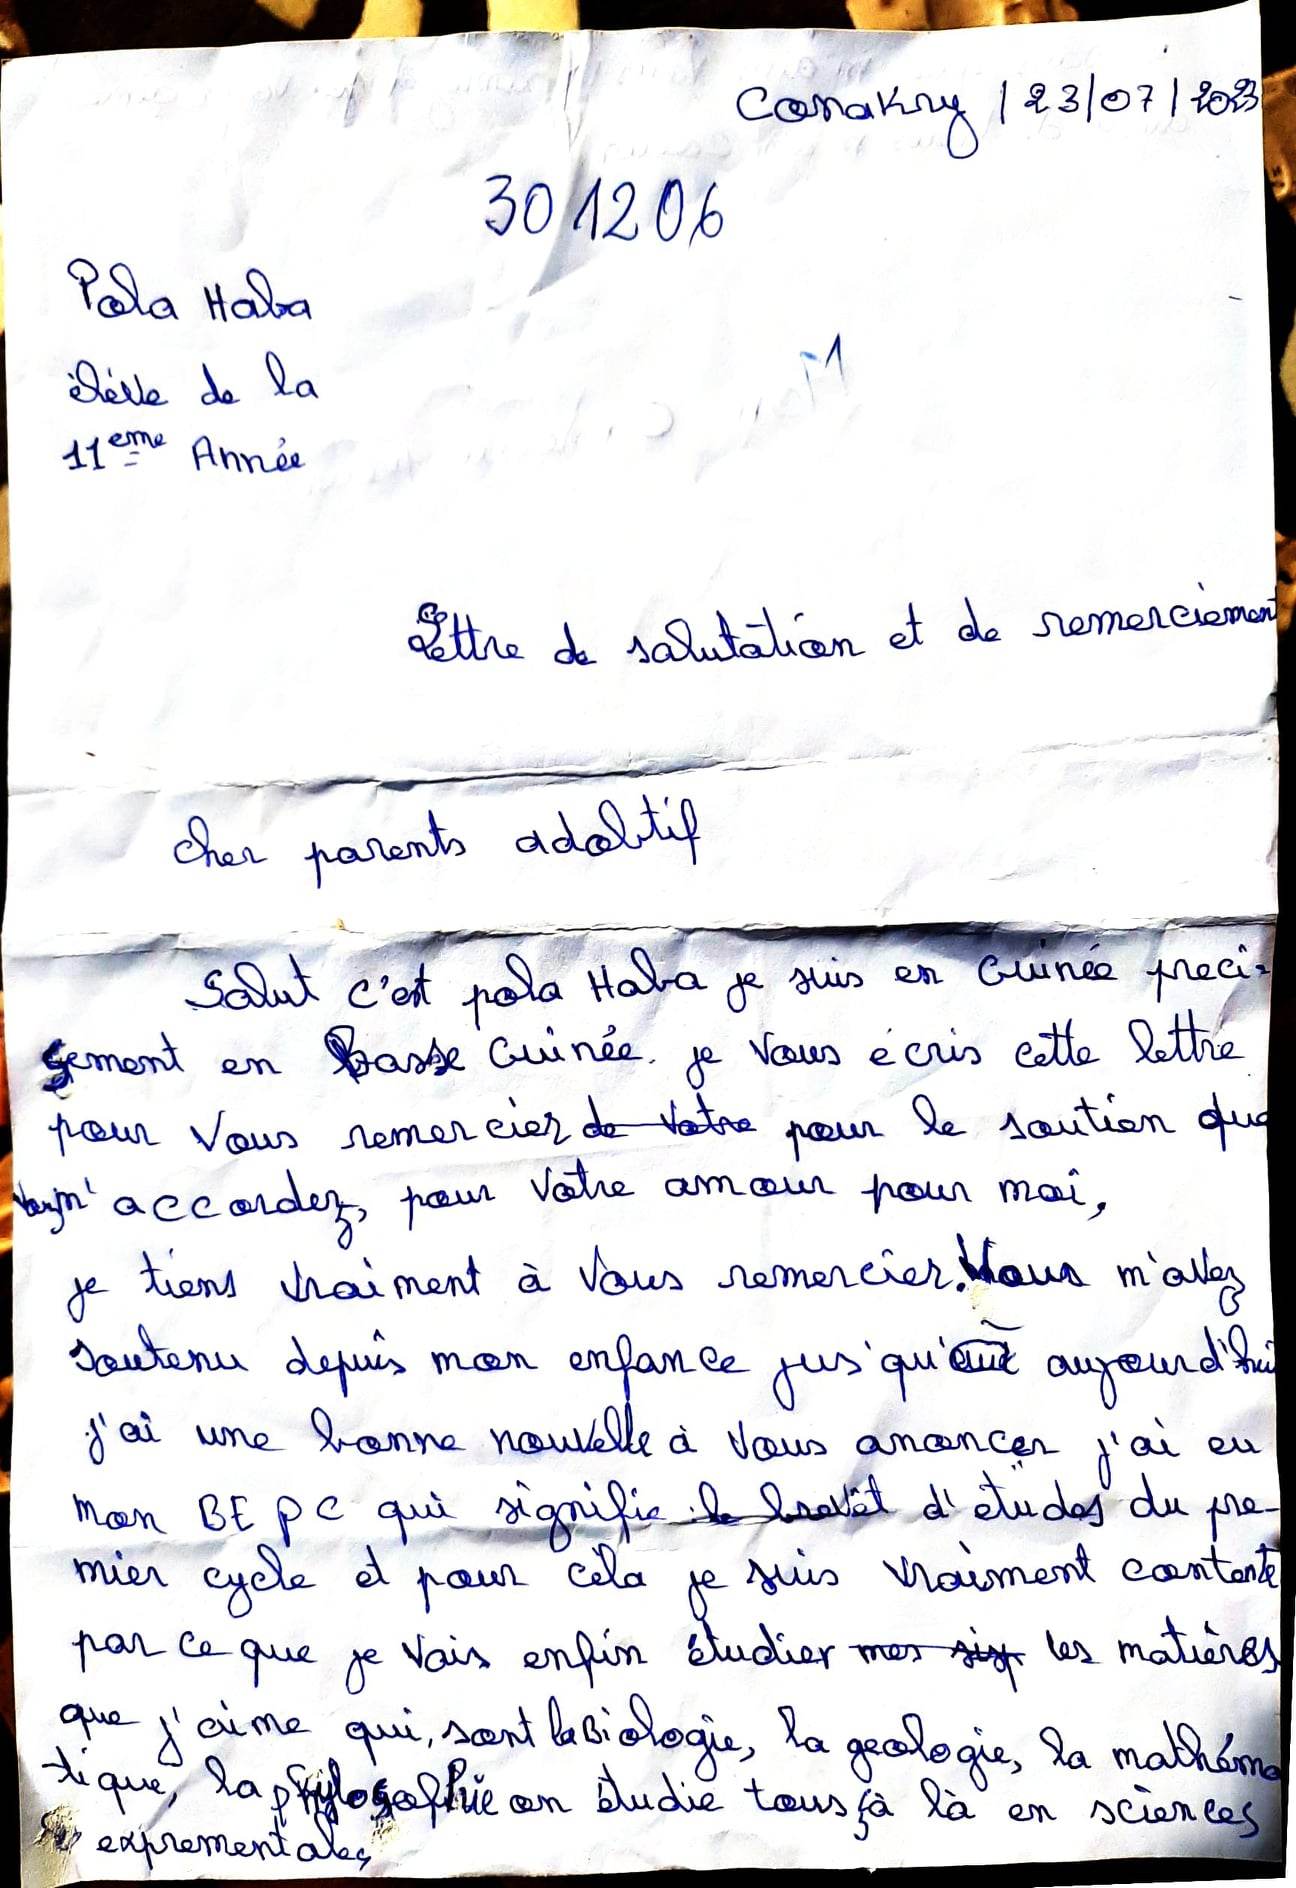 Conakry / 23/07/2023
301206
Pola Haba
élève de la
11eme Année
Lettre de salutation et de remerciement
cher parents adobtif
Salut c'est pola Haba je suis en Guinée preci-
sement en Basse Guinée. je vous écris cette lettre
pour vous remercier de votre pour le soutien que
vous m'accordez, pour votre amour pour moi,
je tiens vraiment à vous remercier. Vous m'avez
soutenu depuis mon enfance jus'qu'à aujourd'hui
j'ai une bonne nouvelle à vous anoncer j'ai eu
mon BEPC qui signifie le brevêt d'études du pre-
mier cycle et pour céla je suis vraiment contente
par ce que je vais enfin étudier mes les matières
que j'aime qui, sont la Biologie, la geologie, la mathéma
tique, la phylosophie on étudie tous çà là en sciences
exprementales